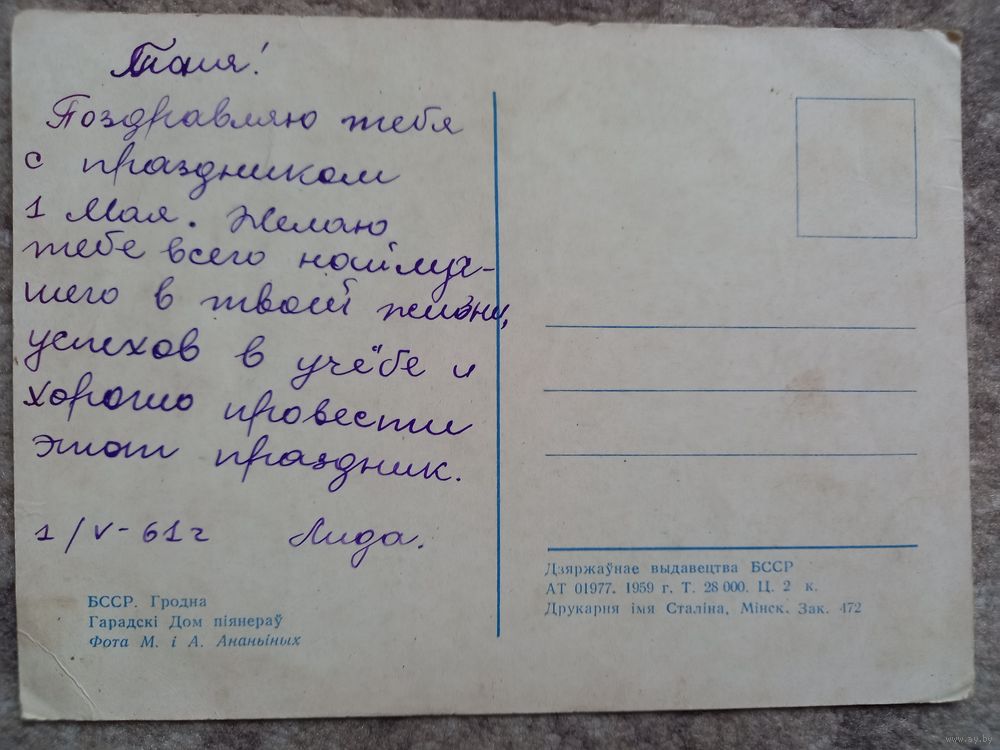 Таня!
Поздравляю тебя
с праздником
1 Мая. Желаю
тебе всего наилуч-
шего в твоей жизни,
успехов в учёбе и
хорошо провести
этот праздник.
1/V-61г Лида.
БССР. Гродна
Гарадскі Дом піянераў
Фота М. і А. Ананьіных
Дзяржаўнае выдавецтва БССР
АТ 01977. 1959 г. Т. 28 000. Ц. 2 к.
Друкарня імя Сталіна, Мінск. Зак. 472
www.ay.by